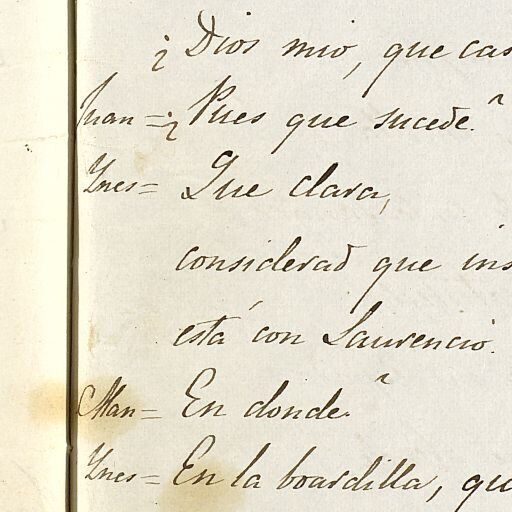 ¿Dios mio, que cas
Juan = ¿Pues que sucede?
Ynes = Que clara,
considerad que ins
está con Laurencio.
Man = En donde?
Ynes = En la boardilla, qu